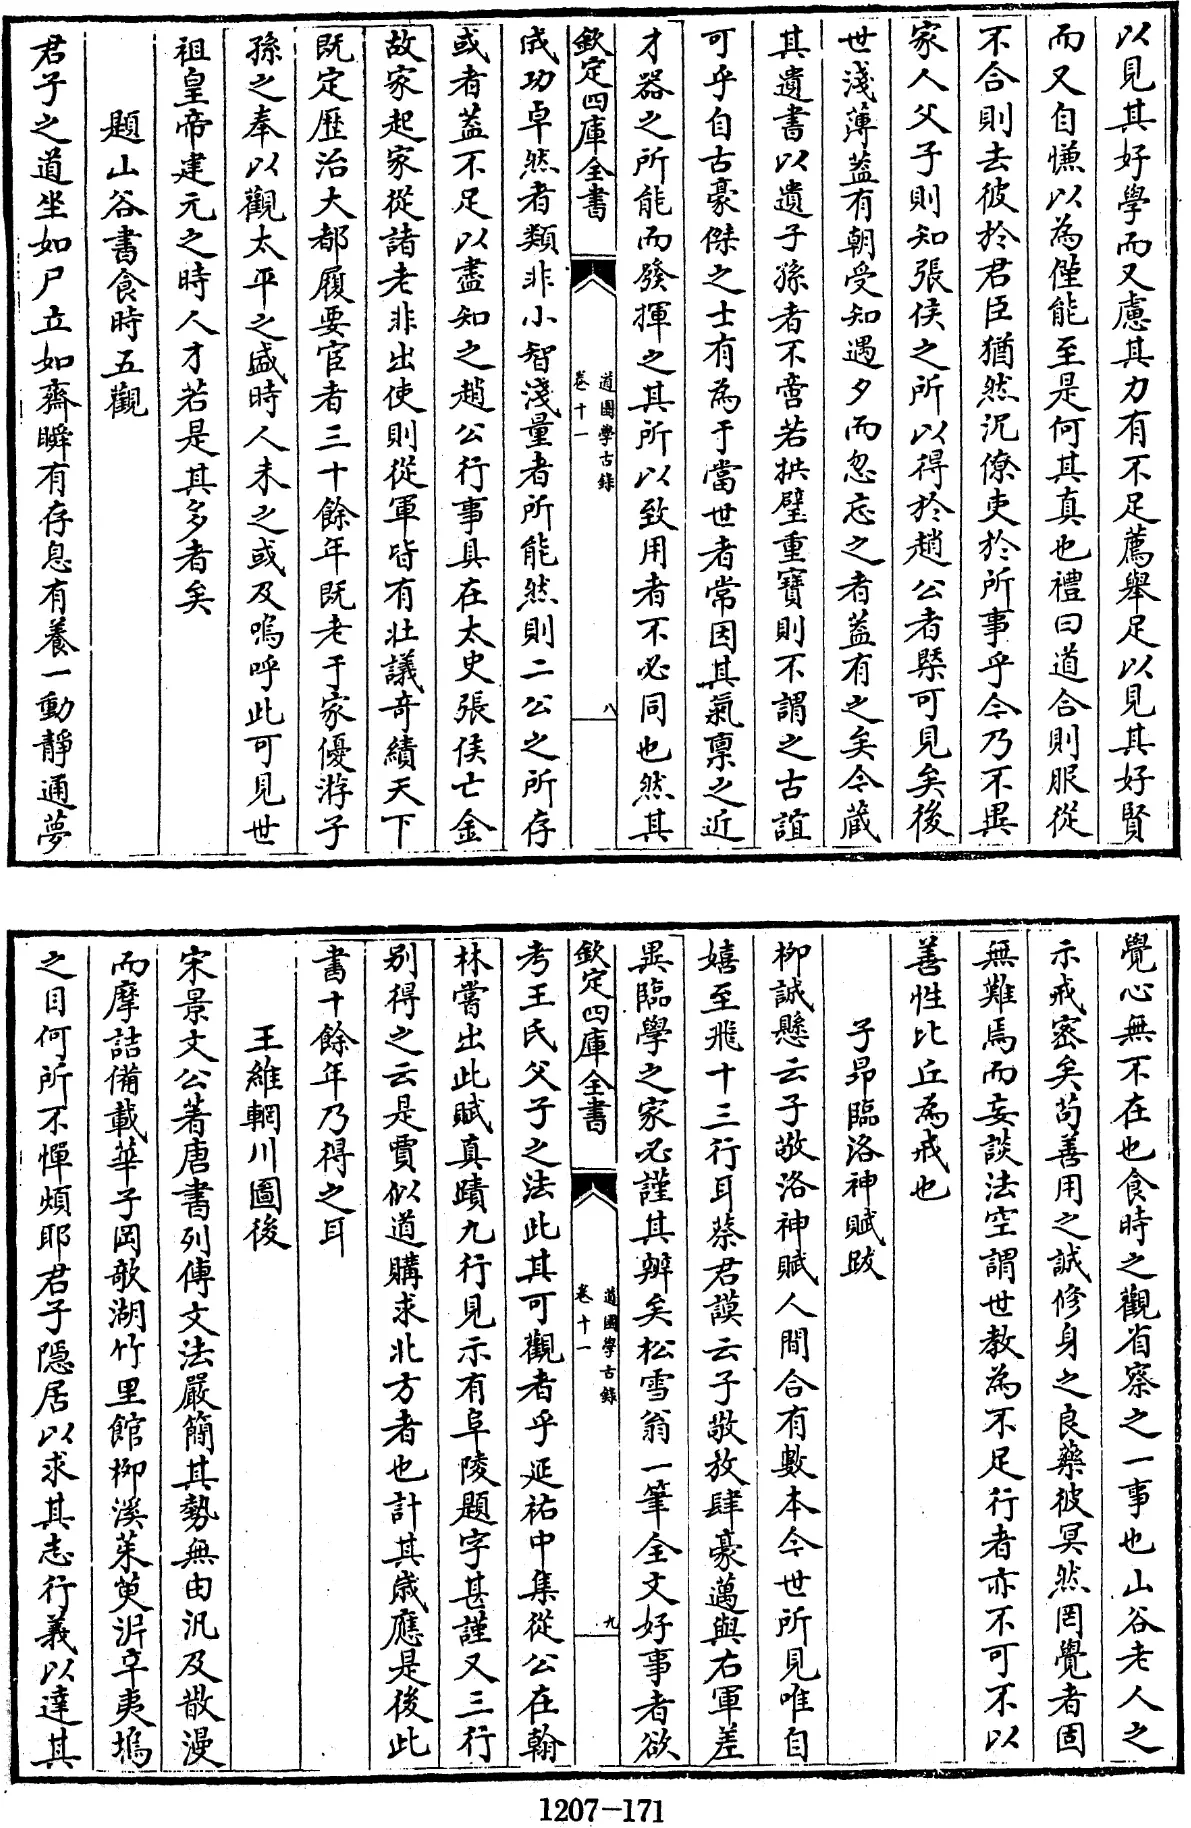 以見其好學而又慮其力有不足薦舉足以見其好賢
而又自慊以為僅能至是何其真也禮曰道合則服從
不合則去彼於君臣猶然況僚吏於所事乎今乃不異
家人父子則知張侯之所以得於趙公者槩可見矣後
世淺薄蓋有朝受知遇夕而忽忘之者蓋有之矣今藏
其遺書以遺子孫者不啻若拱璧重寶則不謂之古誼
可乎自古豪傑之士有為于當世者常因其氣禀之近
才器之所能而發揮之其所以致用者不必同也然其
欽定四庫全書
道園學古錄
卷十一
八
成功卓然者類非小智淺量者所能然則二公之所存
或者蓋不足以盡知之趙公行事具在太史張侯亡金
故家起家從諸老非出使則從軍皆有壯議奇績天下
既定歷治大都履要官者三十餘年既老于家優游子
孫之奉以觀太平之盛時人未之或及嗚呼此可見世
祖皇帝建元之時人才若是其多者矣
題山谷書食時五觀
君子之道坐如尸立如齋瞬有存息有養一動靜通夢
覺心無不在也食時之觀省察之一事也山谷老人之
示戒密矣苟善用之誠修身之良藥彼冥然罔覺者固
無難焉而妄談法空謂世教為不足行者亦不可不以
善性比丘為戒也
子昂臨洛神賦跋
柳誠懸云子敬洛神賦人間合有數本今世所見唯自
嬉至飛十三行耳蔡君謨云子敬放肆豪邁與右軍差
異臨學之家必謹其辨矣松雪翁一筆全文好事者欲
欽定四庫全書
道園學古錄
卷十一
九
考王氏父子之法此其可觀者乎延祐中集從公在翰
林嘗出此賦真蹟九行見示有阜陵題字甚謹又三行
別得之云是賈似道購求北方者也計其歲應是後此
書十餘年乃得之耳
王維輞川圖後
宋景文公著唐書列傳文法嚴簡其勢無由汎及散漫
而摩詰備載華子岡欹湖竹里館柳溪茱萸沜辛夷塢
之目何所不憚煩耶君子隱居以求其志行義以達其
1207-171